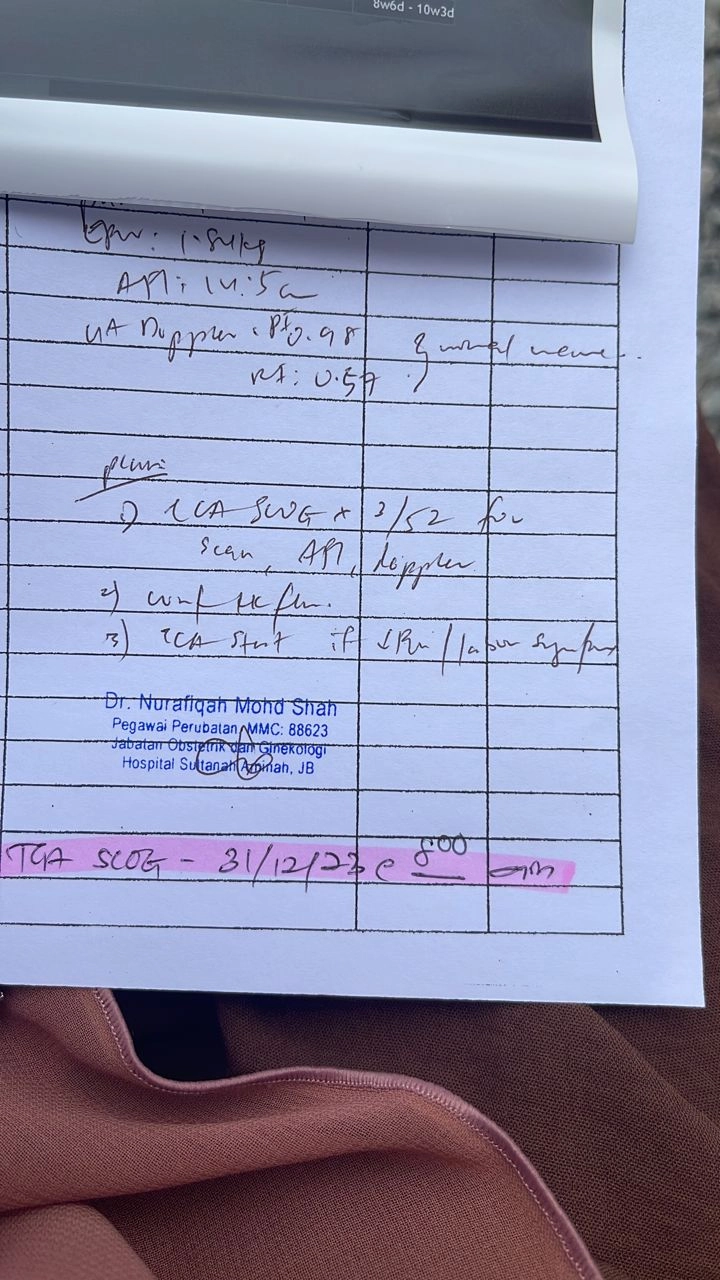 8w6d - 10w3d
EFW: 1.84kg
AFI: 14.5c
UA Doppler: PI 0.98
RI: 0.57 } normal
plan:
1) TCA SCOG x 3/52 for
scan, AFI, doppler
2)
3) TCA Stat if ↓ FM / labor symptom
Dr. Nurafiqah Mohd Shah
Pegawai Perubatan MMC: 88623
Jabatan Obstetrik dan Ginekologi
Hospital Sultanah Aminah, JB
TCA SCOG - 31/12/23 @ 8:00 am